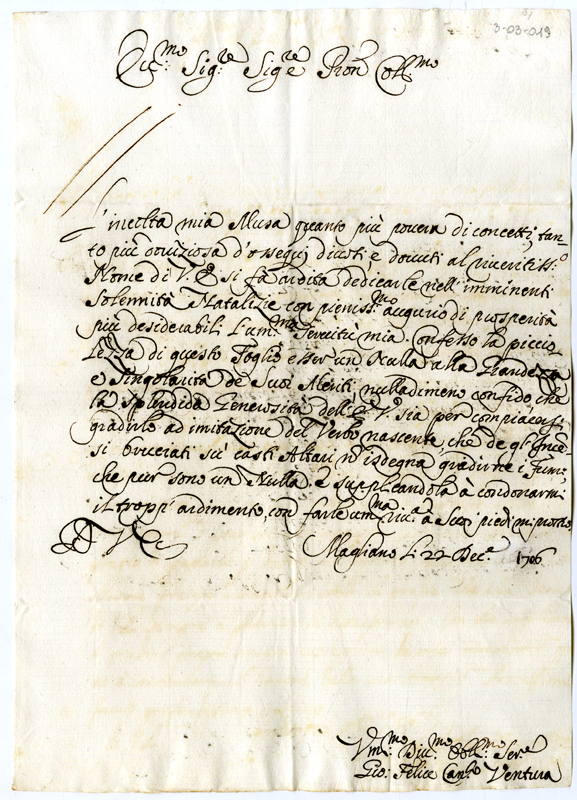 3-03-019
Ecc.mo Sig.re Sig.re Pron Coll.mo
L'incolta mia Musa quanto più povera di concetti, tan-
to più doviziosa d'ossequj divoti, e dovuti al riveritiss.o
Nome di V. E. si fà ardita dedicarle nell'imminenti
Solennità Natalizie con pieniss.mo augurio di prosperità
più desiderabili l'um.ma Servitù mia. Confesso la piccio-
lezza di questo Foglio esser un Nulla alla Grandezza
e Singolarità de Suoi Meriti; nulladimeno confido che
la splendida Generosità dell' E. V. sia per compiacersi
gradirlo ad imitazione del Verbo nascente, che de gl'Incensi
si bruciati sù casti Altari nõ isdegna gradirne i Fumi,
che pur sono un Nulla. E supplicandola à condonarmi
il tropp'ardimento, con farle um.ma riv.a à Suoi piedi mi prostro
D V E
Magliano li 22 Dec.e 1706
Vm.mo Div.mo Obl.mo Ser.e
Gio: Felice Can.co Ventura